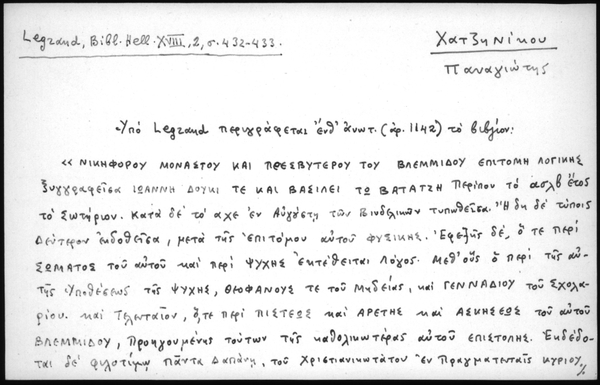 Legrand, Bibl. Hell. XVIII, 2, σ. 432-433.
Χατζηνίκου
Παναγιώτης
Ὑπό Legrand περιγράφεται ἔνθ' ἀνωτ. (ἀρ. 1142) τό βιβλίον:
« ΝΙΚΗΦΟΡΟΥ ΜΟΝΑΣΤΟΥ ΚΑΙ ΠΡΕΣΒΥΤΕΡΟΥ ΤΟΥ ΒΛΕΜΜΙΔΟΥ ΕΠΙΤΟΜΗ ΛΟΓΙΚΗΣ
Ξυγγραφεῖσα ΙΩΑΝΝΗ ΔΟΥΚΙ ΤΕ ΚΑΙ ΒΑΣΙΛΕΙ ΤΩ ΒΑΤΑΤΖΗ Περίπου τό ασλβ ἔτος
τό Σωτήριον. Κατά δέ τό αχε ἐν Αὐγούστῃ τῶν Βινδελικῶν τυπωθεῖσα. Ἤδη δέ τύποις
Δεύτερον ἐκδοθεῖσα, μετά τῆς ἐπιτόμου αὐτοῦ ΦΥΣΙΚΗΣ. Ἐφεξῆς δέ, ὅ τε περί
ΣΩΜΑΤΟΣ τοῦ αὐτοῦ καί περί ΨΥΧΗΣ Ἐκτέθειται Λόγος. Μεθ' οὕς ὁ περί τῆς αὐ-
τῆς Ὑποθέσεως τῆς ΨΥΧΗΣ, ΘΕΟΦΑΝΟΥΣ τε τοῦ Μηδείας, καί ΓΕΝΝΑΔΙΟΥ τοῦ Σχολα-
ρίου. καί Τελευταῖον, ὅ,τε περί ΠΙΣΤΕΩΣ καί ΑΡΕΤΗΣ καί ΑΣΚΗΣΕΩΣ τοῦ αὐτοῦ
ΒΛΕΜΜΙΔΟΥ, Προηγουμένης τούτων τῆς καθολικωτέρας αὐτοῦ ἐπιστολῆς. Ἐκδέδο-
ται δέ φιλοτίμῳ πάντα Δαπάνῃ, τοῦ Χριστιανικωτάτου ἐν Πραγματευταῖς κυρίου